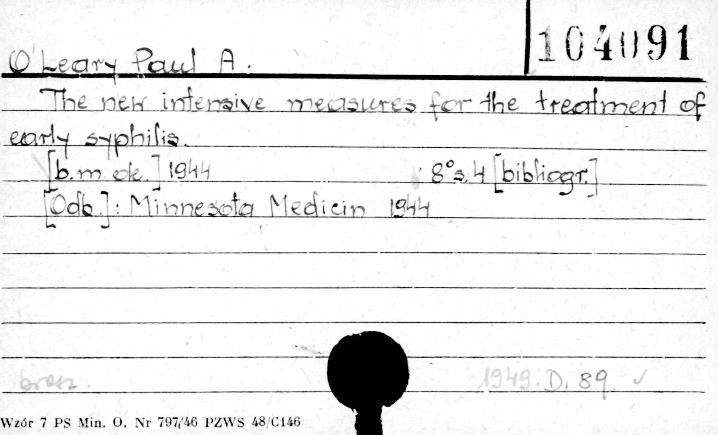 104091
O'Leary Paul A.
The new intensive measures for the treatment of
early syphilis.
[b.m. ok.] 1944 8° s. 4 [bibliogr.]
[Odb.]: Minnesota Medicin 1944
brosz.
1949. D. 89. ✓
Wzór 7 PS Min. O. Nr 797/46 PZWS 48/C146